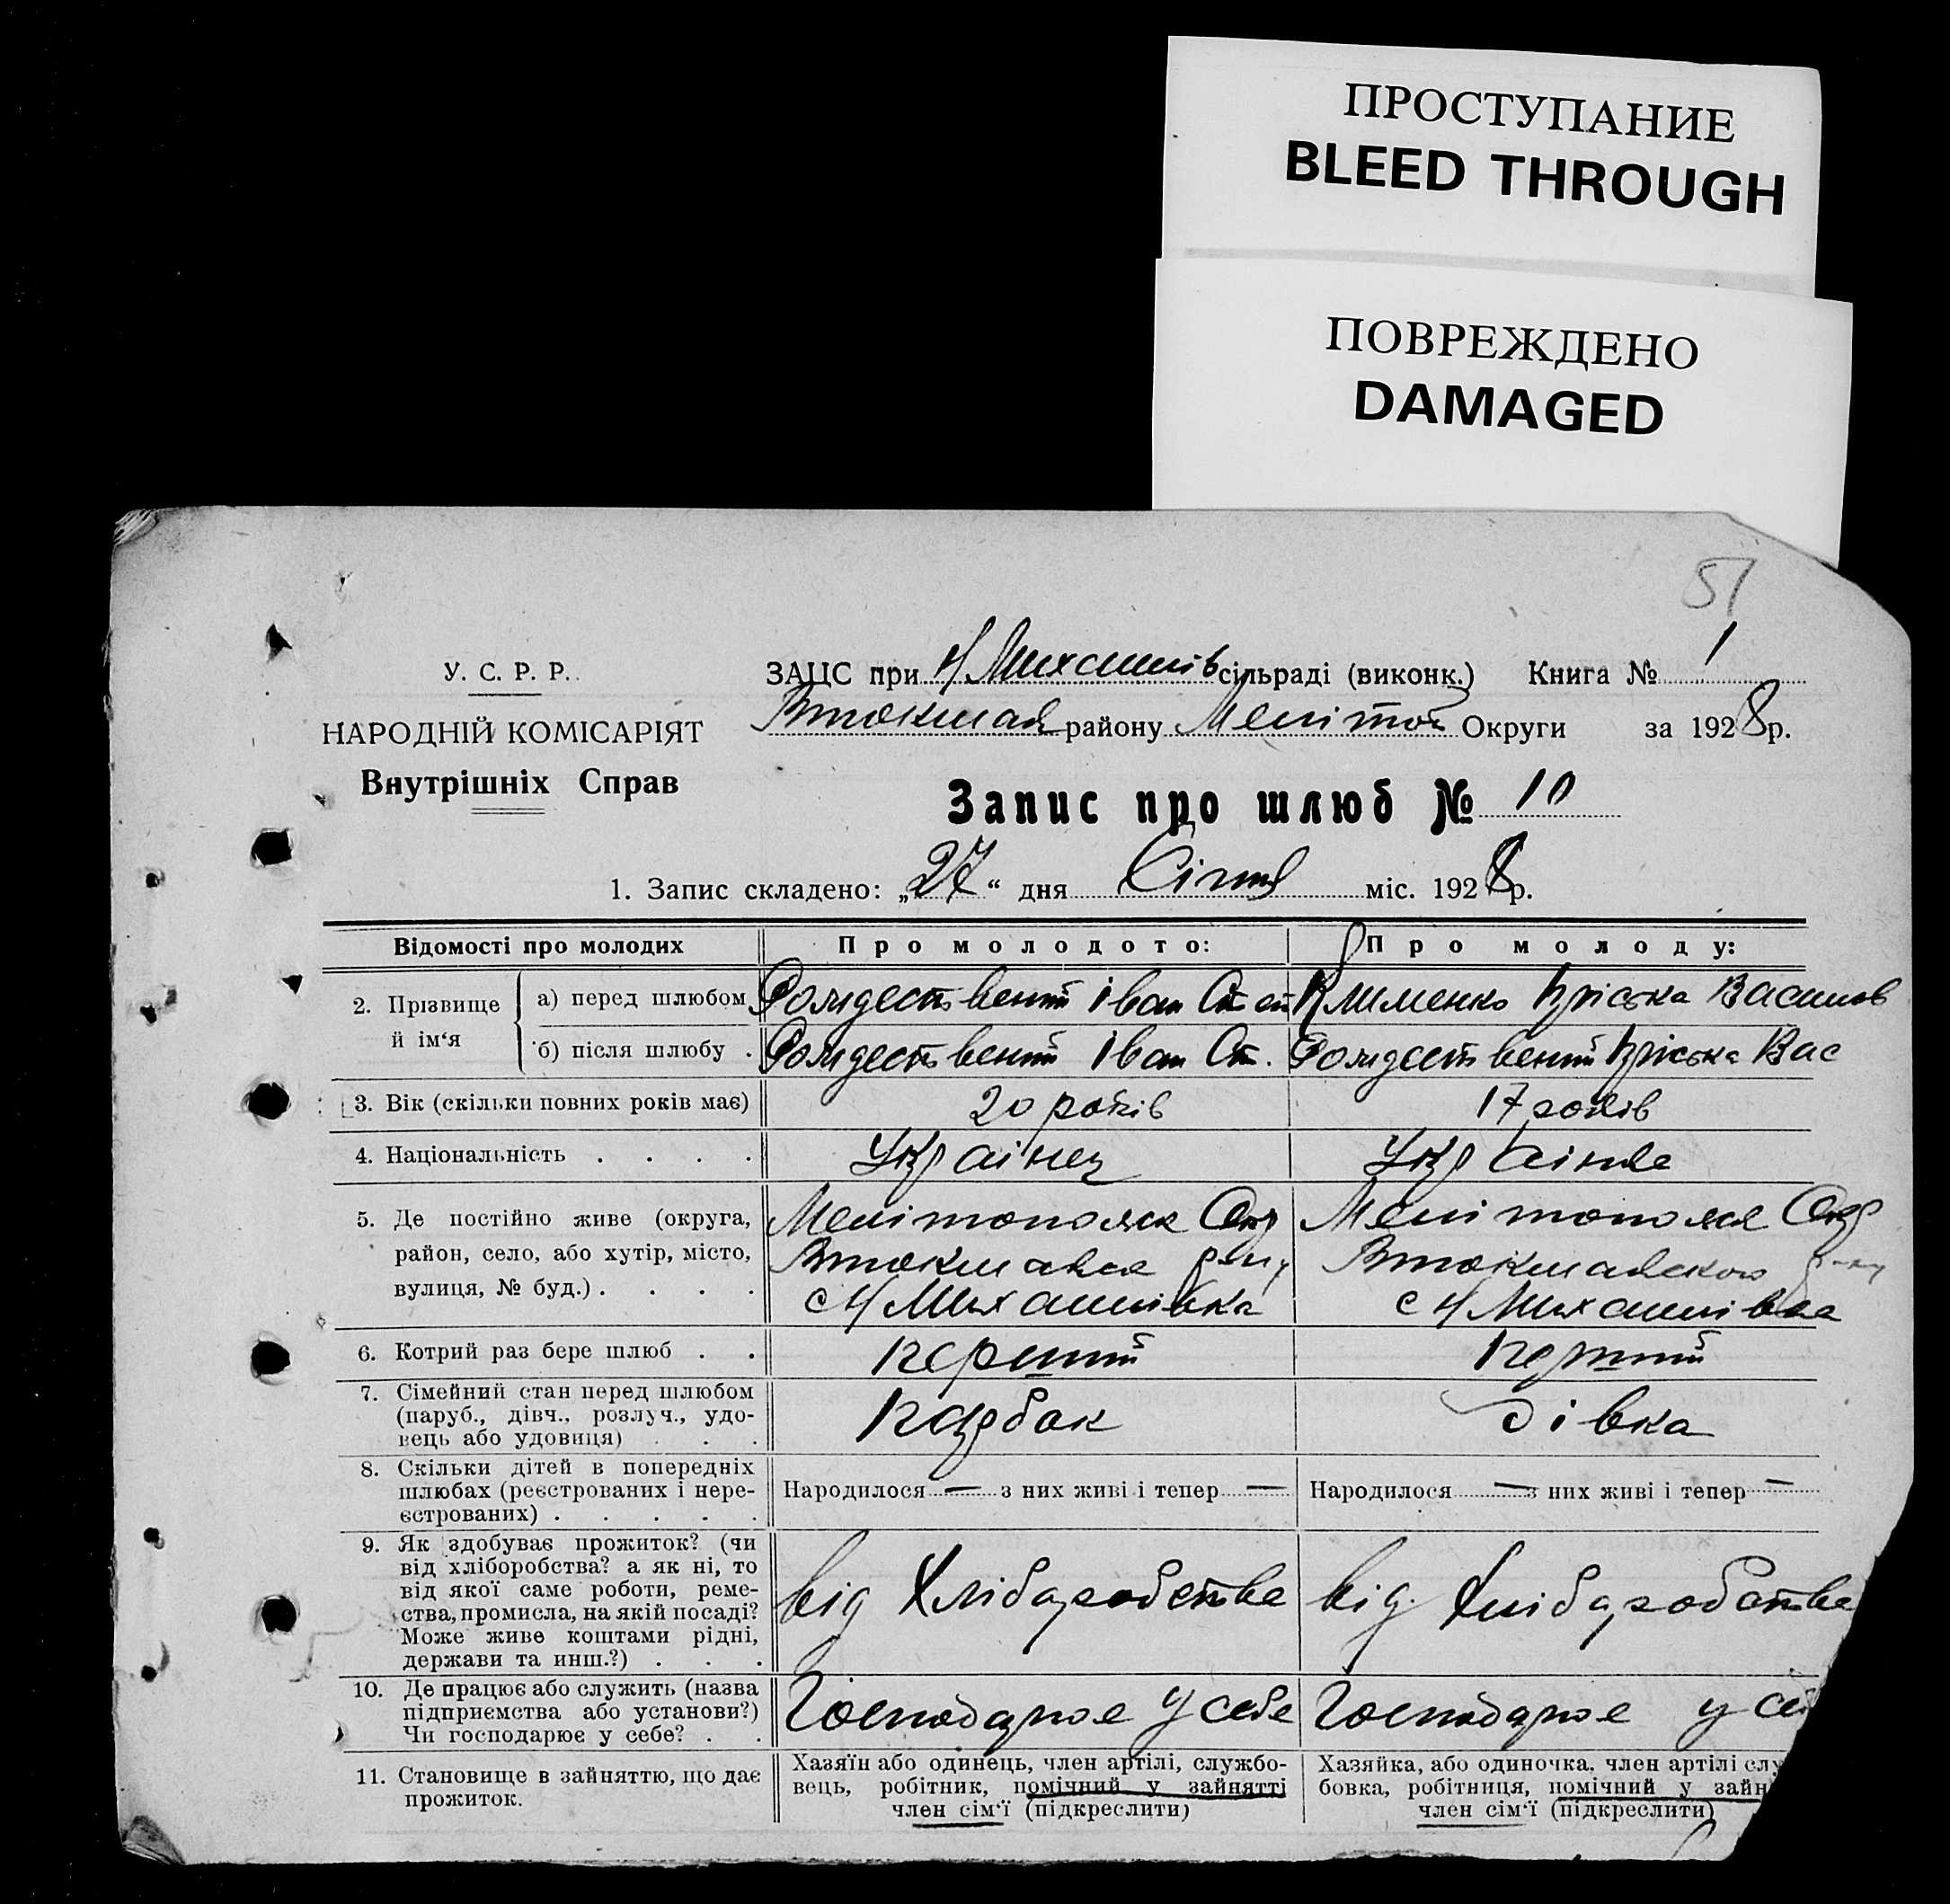 ПРОСТУПАНИЕ
BLEED THROUGH
ПОВРЕЖДЕНО
DAMAGED
51
У. С. Р. Р.
НАРОДНІЙ КОМІСАРІЯТ
Внутрішніх Справ
ЗАЦС при Н Михайлів сільраді (виконк.) Книга № 1
Втокмак району Меліто Округи за 1928 р.
Запис про шлюб № 10
1. Запис складено: „27“ дня Січня міс. 1928 р.
Відомості про молодих
Про молодого:
Про молоду:
2. Прізвище й ім‘я
а) перед шлюбом
Рождествений Іван Ст
Клименко Пріська Васильов
б) після шлюбу .
Рождествений Іван Ст.
Рождествений Пріська Вас
3. Вік (скільки повних років має)
20 років
17 років
4. Національність . . . .
Українец
Українка
5. Де постійно живе (округа,
район, село, або хутір, місто,
вулиця, № буд.) . . . .
Мелітопольск Окр
Втокмакск р-ну
с Н Михайлівка
Мелітопольск Окр
Втокмакского р-ну
с Н Михайлівка
6. Котрий раз бере шлюб . .
перший
перший
7. Сімейний стан перед шлюбом
(паруб., дівч., розлуч., удо-
вець або удовиця) . . .
парубок
дівка
8. Скільки дітей в попередніх
шлюбах (реєстрованих і нере-
єстрованих) . . . . .
Народилося — з них живі і тепер —
Народилося — з них живі і тепер —
9. Як здобуває прожиток? (чи
від хліборобства? а як ні, то
від якої саме роботи, реме-
ства, промисла, на якій посаді?
Може живе коштами рідні,
держави та инш.?) . . .
від Хлібаробства
від. Хлібаробства
10. Де працює або служить (назва
підприємства або установи?)
Чи господарює у себе? . .
Господарює у себе
Господарює у
11. Становище в зайняттю, що дає
прожиток.
Хазяїн або одинець, член артілі, службо-
вець, робітник, помічний у зайнятті
член сім‘ї (підкреслити)
Хазяйка, або одиночка, член артілі слу
бовка, робітниця, помічний у зайн
член сім‘ї (підкреслити)